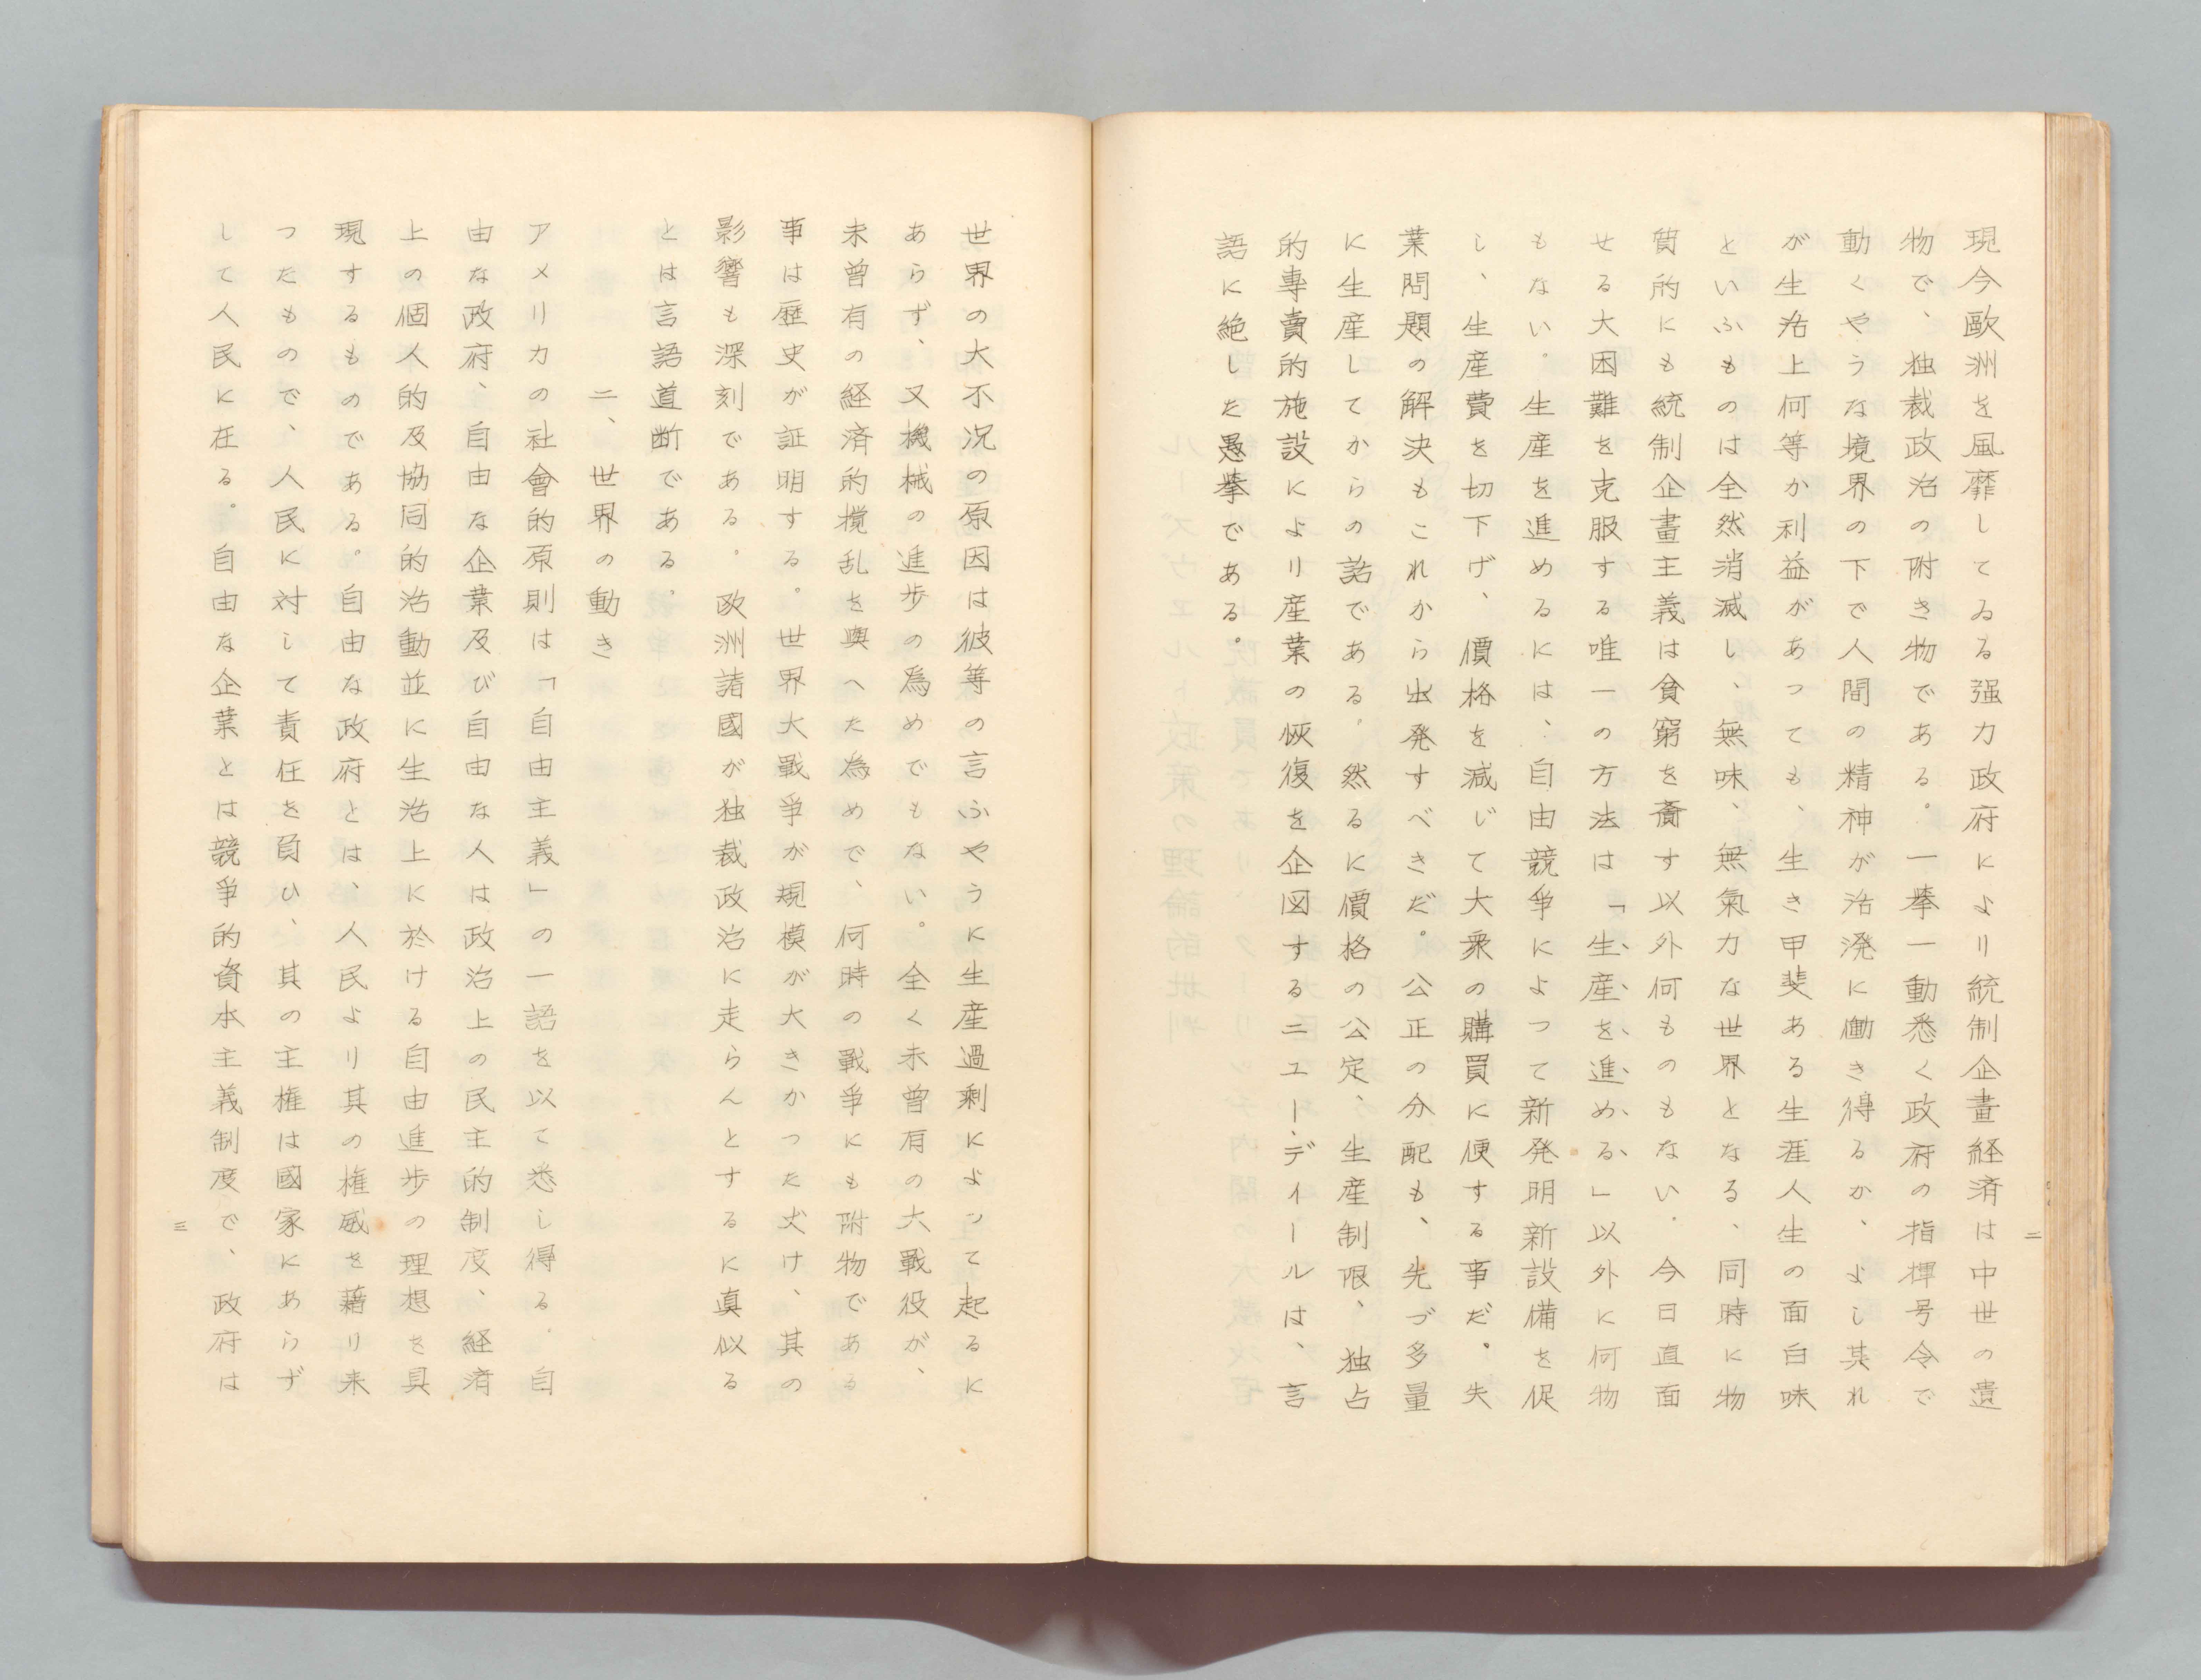 現今歐洲を風靡してゐる强力政府により統制企畫経済は中世の遺
物で、独裁政治の附き物である。一擧一動悉く政府の指揮号令で
動くやうな境界の下で人間の精神が活溌に働き得るか、よし其れ
が生活上何等か利益があつても、生き甲斐ある生涯人生の面白味
といふものは全然消滅し、無味、無氣力な世界となる、同時に物
質的にも統制企畫主義は貧窮を齎す以外何ものもない。今日直面
せる大困難を克服する唯一の方法は「生産を進める」以外に何物
もない。生産を進めるには、自由競争によつて新発明新設備を促
し、生産費を切下げ、價格を減じて大衆の購買に便する事だ。失
業問題の解決もこれから出発すべきだ。公正の分配も、先づ多量
に生産してからの話である。然るに價格の公定、生産制限、独占
的專賣的施設により産業の恢復を企図するニユー・ディールは、言
語に絶した愚擧である。
二
世界の大不況の原因は彼等の言ふやうに生産過剰によつて起るに
あらず、又機械の進歩の爲めでもない。全く未曽有の大戰役が、
未曽有の経済的撹乱を與へた為めで、何時の戰争にも附物である
事は歴史が証明する。世界大戰爭が規模が大きかつた丈け、其の
影響も深刻である。欧洲諸國が独裁政治に走らんとするに真似る
とは言語道断である。
二、世界の動き
アメリカの社會的原則は「自由主義」の一語を以て悉し得る。自
由な政府、自由な企業及び自由な人は政治上の民主的制度、経済
上の個人的及協同的活動並に生活上に於ける自由進歩の理想を具
現するものである。自由な政府とは、人民より其の権威を藉り来
つたもので、人民に対して責任を負ひ、其の主権は國家にあらず
して人民に在る。自由な企業とは競爭的資本主義制度で、政府は
三